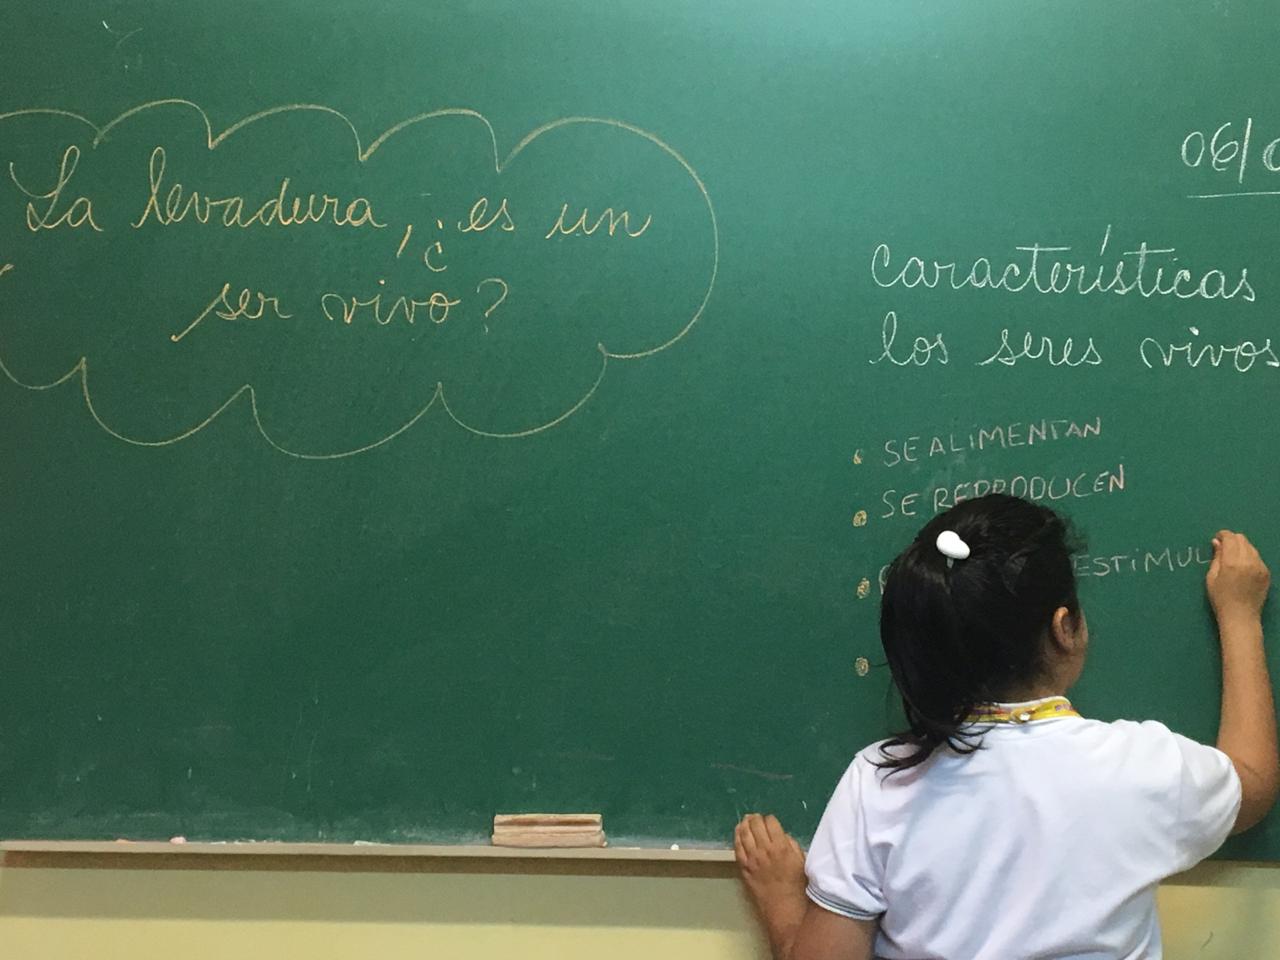 La levadura, ¿es un
ser vivo?
06/
Características
los seres vivos
• SE ALIMENTAN
• SE REPRODUCEN
• ESTIMUL
•